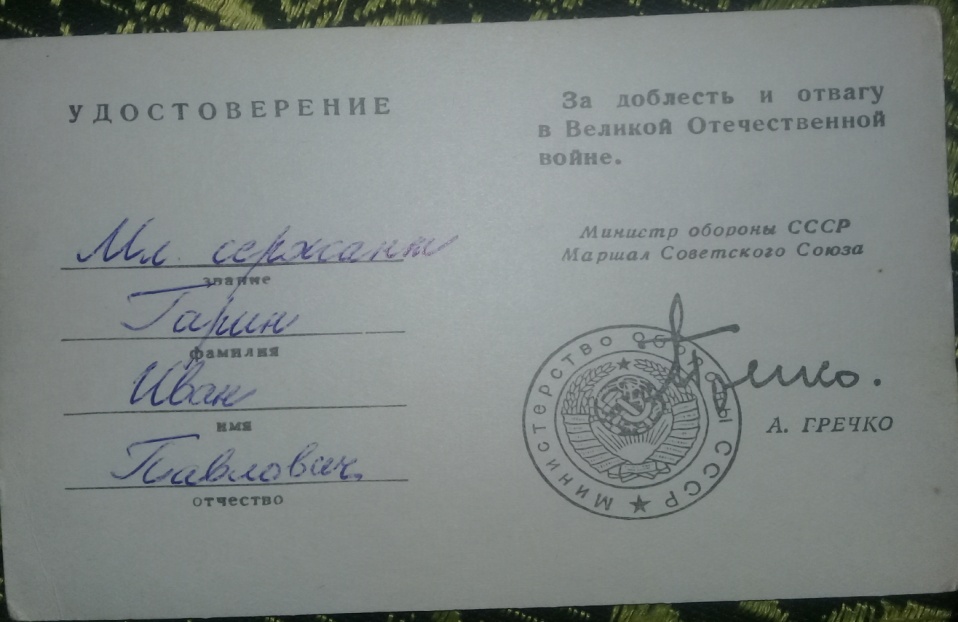 УДОСТОВЕРЕНИЕ
Мл. сержант
звание
Гарин
фамилия
Иван
имя
Павлович
отчество
За доблесть и отвагу
в Великой Отечественной
войне.
Министр обороны СССР
Маршал Советского Союза
Гречко.
А. ГРЕЧКО
МИНИСТЕРСТВО ОБОРОНЫ СССР